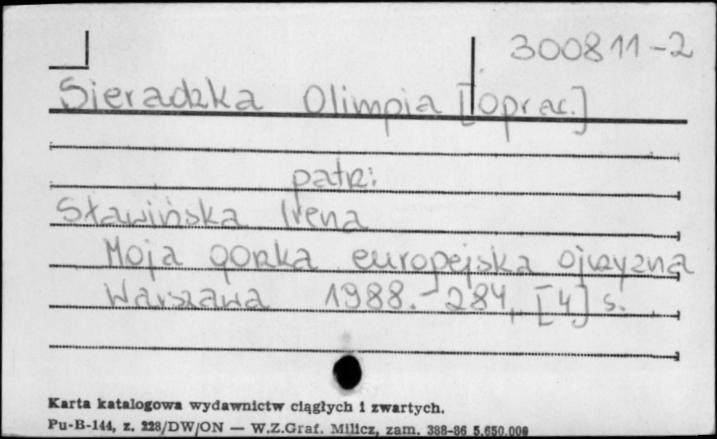 300811-2
Sieradzka Olimpia [oprac.]
patrz:
Sławińska Irena
Moja gorzka europejska ojczyzna
Warszawa 1988.- 284, [4] s.
Karta katalogowa wydawnictw ciągłych i zwartych.
Pu-B-144, z. 228/DW/ON — W.Z.Graf. Milicz, zam. 388-86 5.650.000